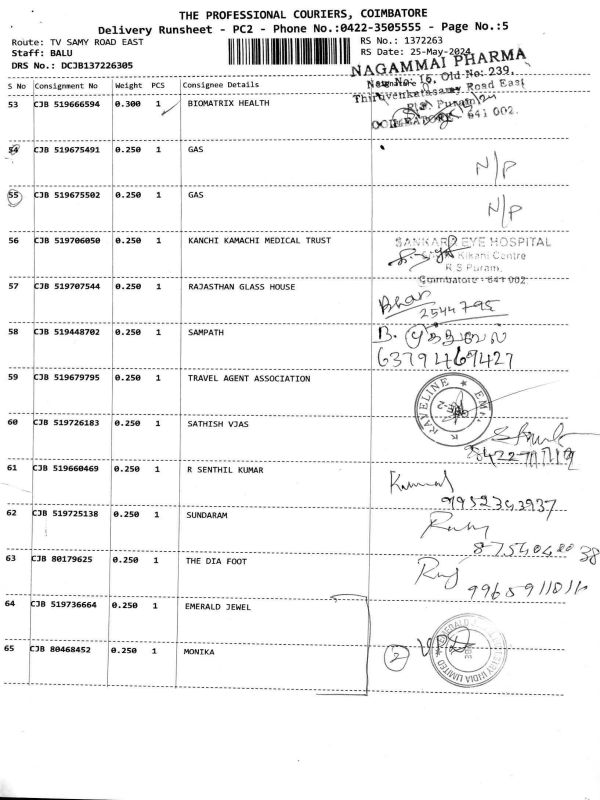 THE PROFESSIONAL COURIERS, COIMBATORE
Delivery Runsheet - PC2 - Phone No.:0422-3505555 - Page No.:5
Route: TV SAMY ROAD EAST
RS No.: 1372263
Staff: BALU
RS Date: 25-May-2024
DRS No.: DCJB137226305
NAGAMMAI PHARMA
New No: 16, Old No: 239,
Thiruvenketasamy Road East
R.S. Puram,
COIMBATORE - 641 002.
S No Consignment No Weight PCS Consignee Details
53 CJB 519666594 0.300 1 BIOMATRIX HEALTH
54 CJB 519675491 0.250 1 GAS
N/P
55 CJB 519675502 0.250 1 GAS
N/P
56 CJB 519706050 0.250 1 KANCHI KAMACHI MEDICAL TRUST
SANKARA EYE HOSPITAL
Kikani Centre
R S Puram,
Coimbatore - 641 002
57 CJB 519707544 0.250 1 RAJASTHAN GLASS HOUSE
2544795
58 CJB 519448702 0.250 1 SAMPATH
B.
59 CJB 519679795 0.250 1 TRAVEL AGENT ASSOCIATION
60 CJB 519726183 0.250 1 SATHISH VJAS
61 CJB 519660469 0.250 1 R SENTHIL KUMAR
9952343937
62 CJB 519725138 0.250 1 SUNDARAM
63 CJB 80179625 0.250 1 THE DIA FOOT
64 CJB 519736664 0.250 1 EMERALD JEWEL
65 CJB 80468452 0.250 1 MONIKA
2